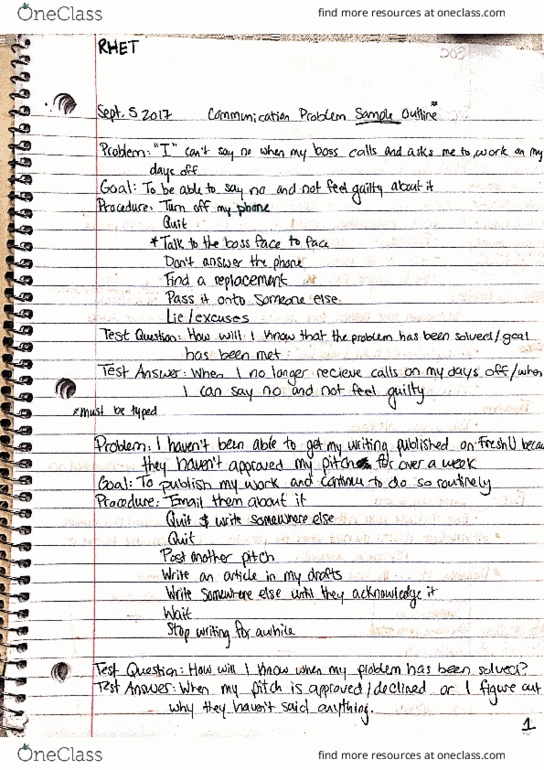 OneClass find more resources at oneclass.com
RHET
Sept. 5 2017 Communication Problem Sample Outline*
Problem: "I" can't say no when my boss calls and asks me to work on my
days off
Goal: To be able to say no and not feel guilty about it
Procedure: Turn off my phone
Quit
*Talk to the boss face to face
Don't answer the phone
Find a replacement
Pass it onto someone else
Lie/excuses
Test Question: How will I know that the problem has been solved/goal
has been met
Test Answer: When I no longer recieve calls on my days off/when
I can say no and not feel guilty
*must be typed
Problem: I haven't been able to get my writing published on FreshU becau
they haven't approved my pitch for over a week
Goal: To publish my work and continue to do so routinely
Procedure: Email them about it
Quit & write somewhere else
Quit
Post another pitch
Write an article in my drafts
Write somewhere else until they acknowledge it
Wait
Stop writing for awhile
Test Question: How will I know when my problem has been solved?
Test Answer: When my pitch is approved/declined or I figure out
why they haven't said anything.
1
OneClass find more resources at oneclass.com